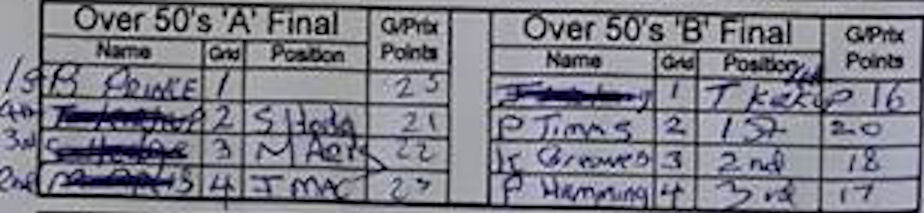 Over 50's 'A' Final G/Prix Points
Name Grid Position
1st B PRINCE 1 25
4th 2 S Hodg 21
3rd 3 M Aers 22
2nd 4 J MAC 23
Over 50's 'B' Final G/Prix Points
Name Grid Position
1 4th T Kekup 16
P Timms 2 1st 20
K Greaves 3 2nd 18
P Hamming 4 3rd 17
Over